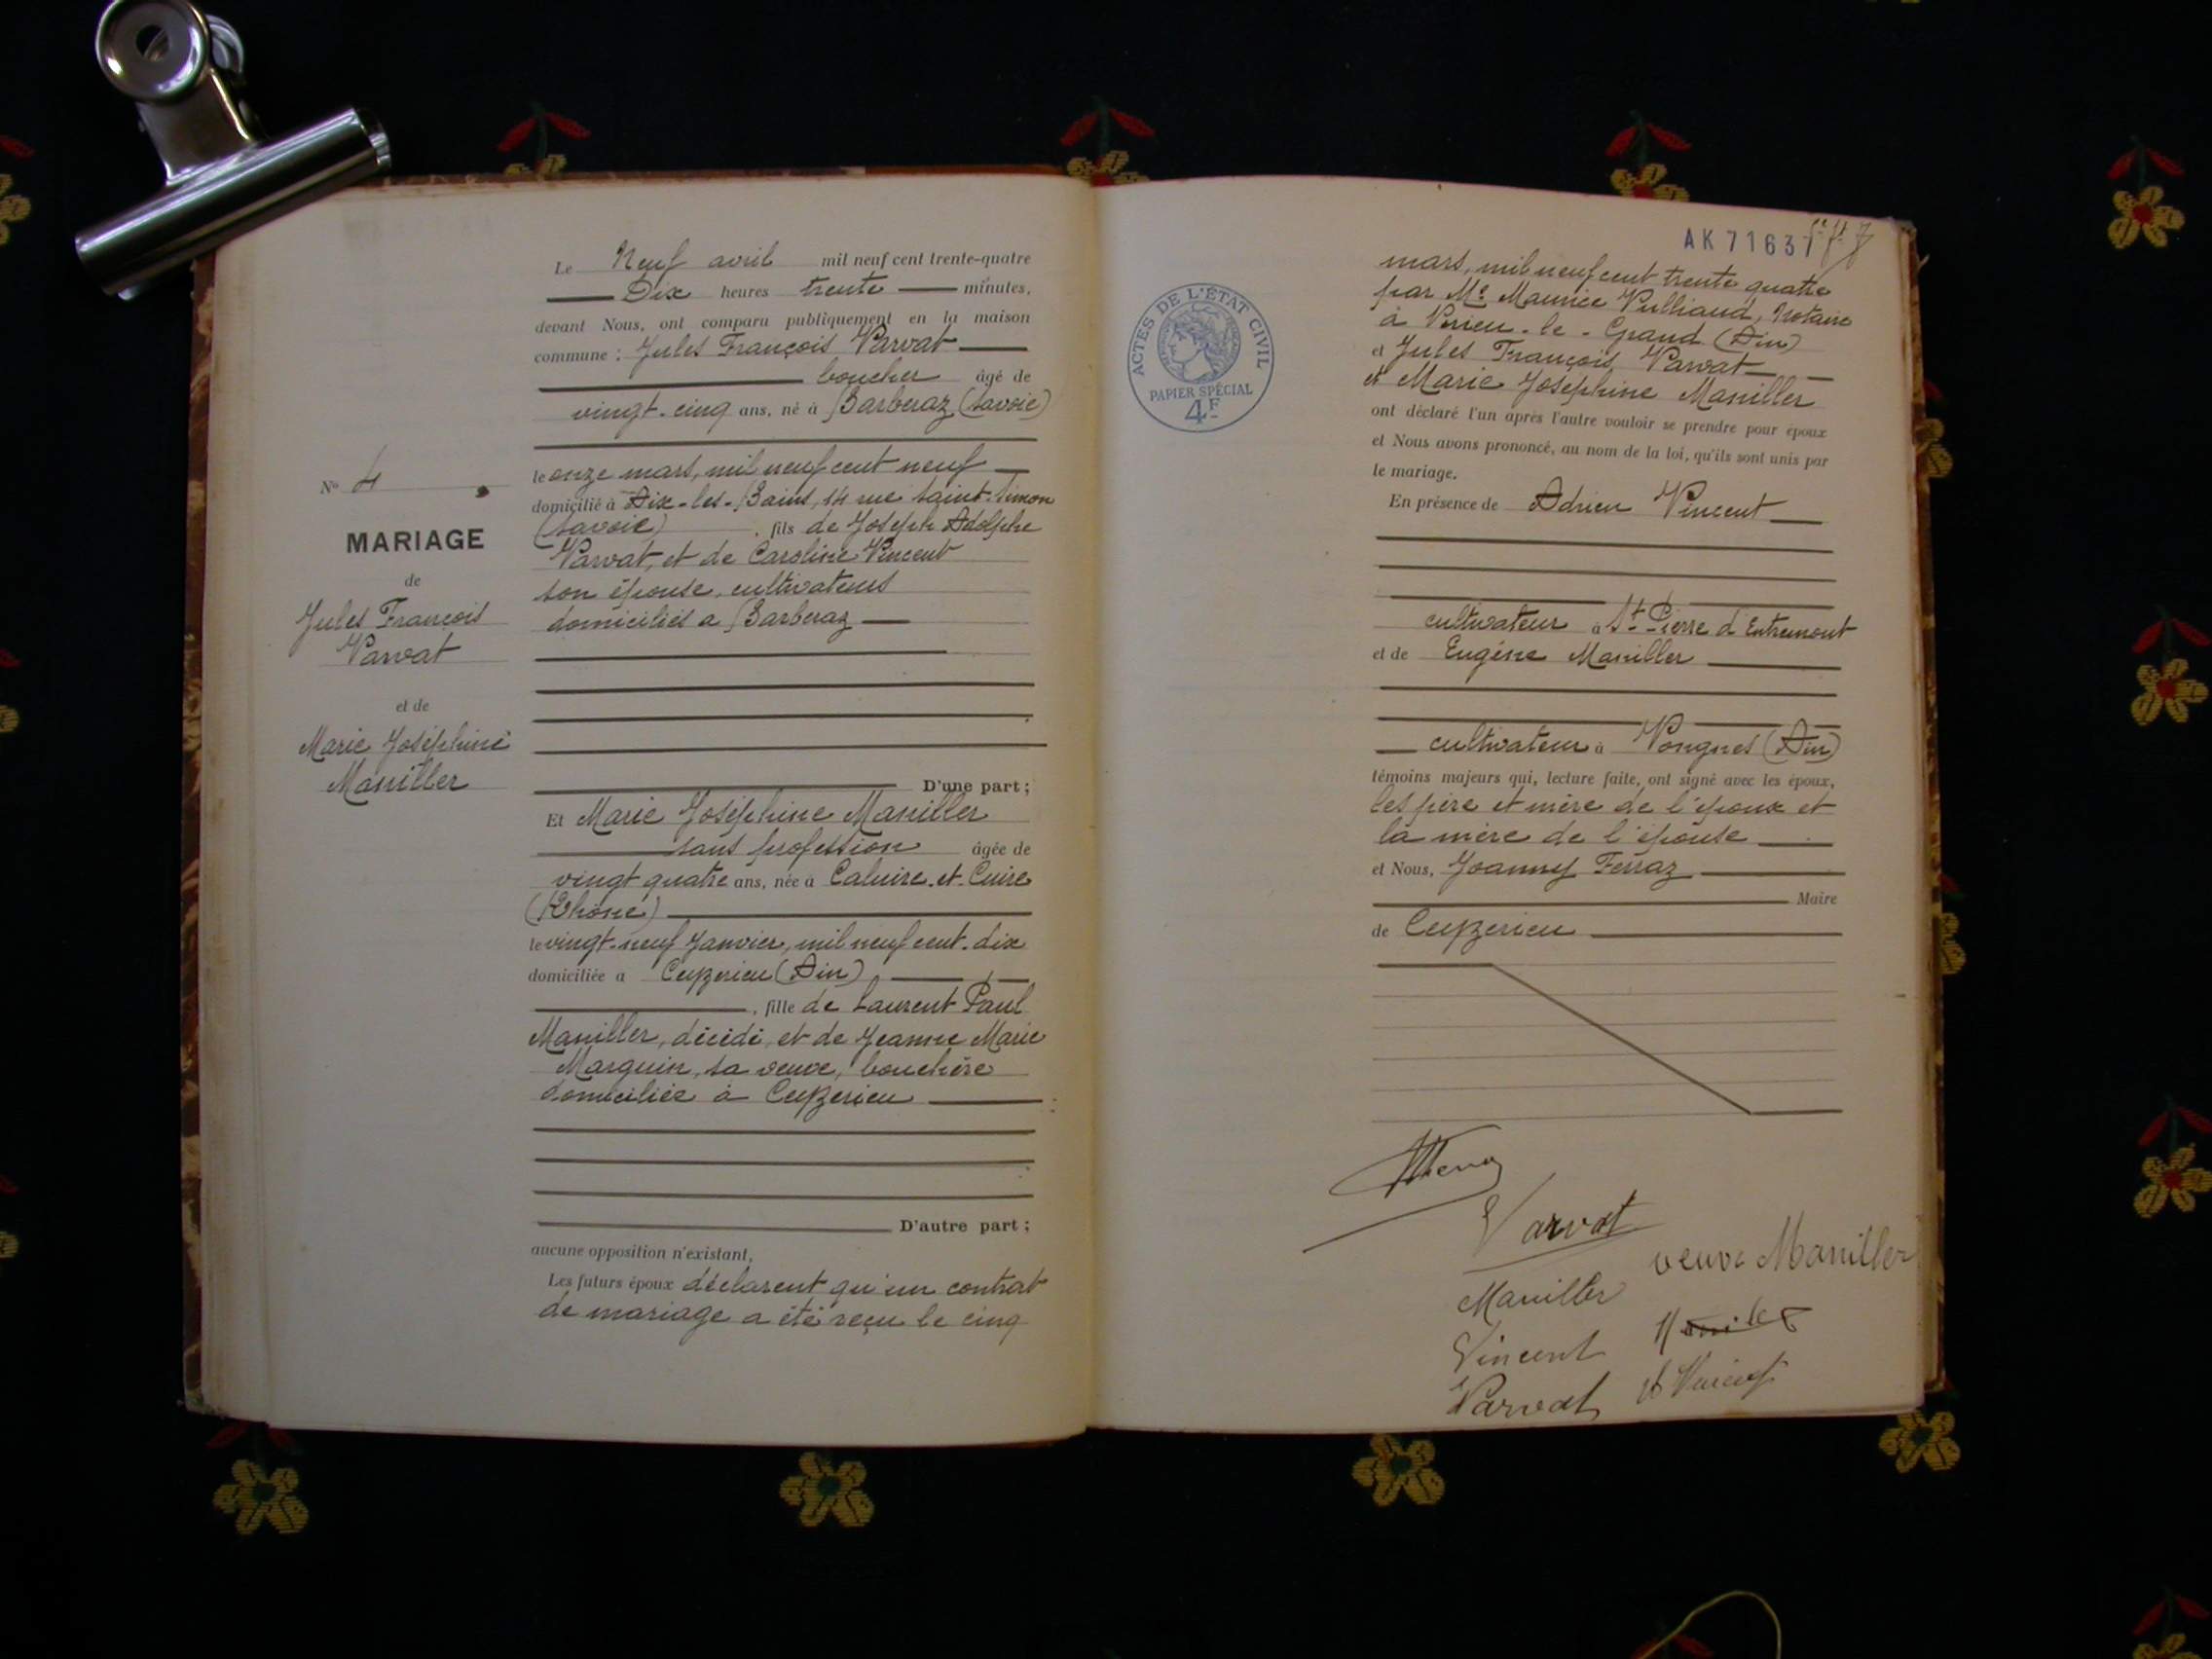 Le Neuf avril mil neuf cent trente-quatre
Dix heures trente minutes,
devant Nous, ont comparu publiquement en la maison
commune : Jules François Varvat
boucher âgé de
vingt-cinq ans, né à Barberaz (Savoie)
le onze mars, mil neuf cent neuf
domicilié à Aix-les-Bains, 14 rue Saint-Simon
(Savoie), fils de Joseph Adolphe
Varvat, et de Caroline Vincent
son épouse, cultivateurs
domiciliés a Barberaz
D'une part ;
Et Marie Joséphine Maniller
sans profession âgée de
vingt quatre ans, née à Caluire-et-Cuire
(Rhône)
le vingt-neuf Janvier, mil neuf cent-dix
domiciliée a Ceyzerieu (Ain)
, fille de Laurent Paul
Maniller, décédé, et de Jeanne Marie
Marguin, sa veuve, bouchère
domiciliée à Ceyzerieu
D'autre part ;
aucune opposition n'existant,
Les futurs époux déclarent qu'un contrat
de mariage a été reçu le cinq
No 4
MARIAGE
de
Jules François
Varvat
et de
Marie Joséphine
Maniller
AK 71637
ACTES DE L'ÉTAT CIVIL
PAPIER SPÉCIAL
4F
mars, mil neuf cent trente quatre
par Me Maurice Vulliaud, Notaire
à Virieu-le-Grand (Ain)
et Jules François Varvat
et Marie Joséphine Maniller
ont déclaré l'un après l'autre vouloir se prendre pour époux
et Nous avons prononcé, au nom de la loi, qu'ils sont unis par
le mariage.
En présence de Adrien Vincent
cultivateur à St-Pierre d'Entremont
et de Eugène Maniller
cultivateur à Vongnes (Ain)
témoins majeurs qui, lecture faite, ont signé avec les époux,
les père et mère de l'époux et
la mère de l'épouse
et Nous, Joanny Ferraz
Maire
de Ceyzerieu
Varvat
veuve Maniller
Maniller
Vincent
Varvat